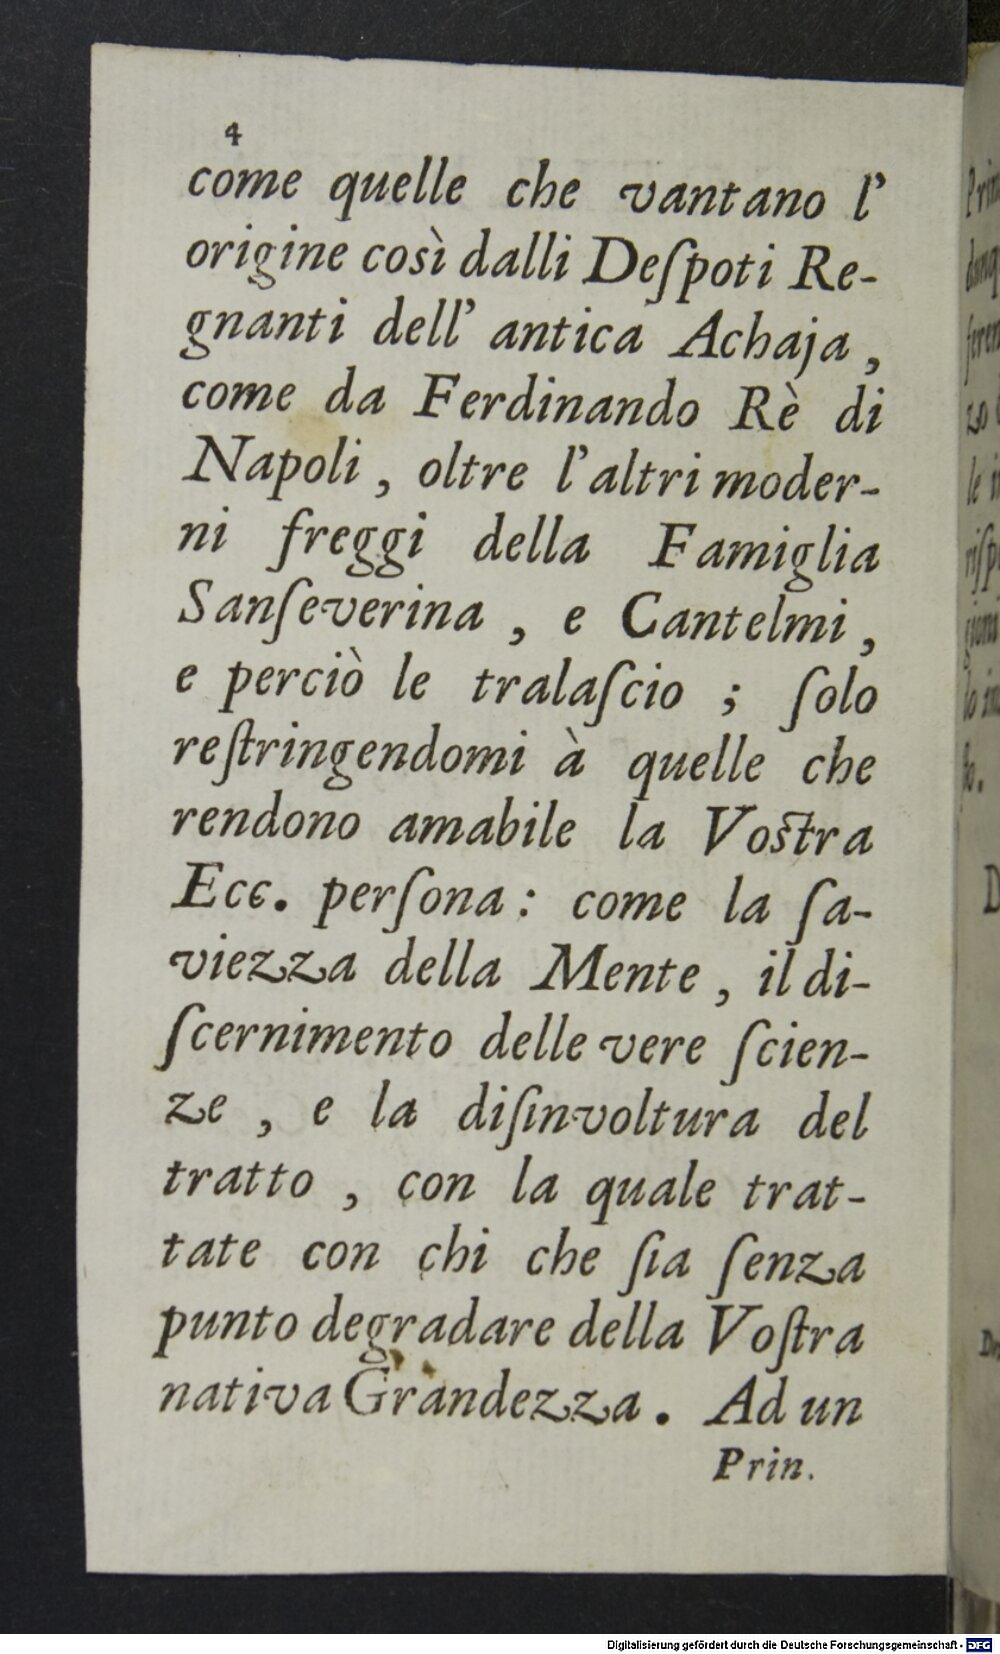 4
come quelle che vantano l'
origine così dalli Deſpoti Re-
gnanti dell' antica Achaja ,
come da Ferdinando Rè di
Napoli , oltre l'altri moder-
ni freggi della Famiglia
Sanſeverina , e Cantelmi ,
e perciò le tralaſcio ; ſolo
reſtringendomi à quelle che
rendono amabile la Vostra
Ecc. perſona : come la ſa-
viezza della Mente , il di-
ſcernimento delle vere ſcien-
ze , e la diſinvoltura del
tratto , con la quale trat-
tate con chi che ſia ſenza
punto degradare della Voſtra
nativa Grandezza . Ad un
Prin.
Digitalisierung gefördert durch die Deutsche Forschungsgemeinschaft - DFG